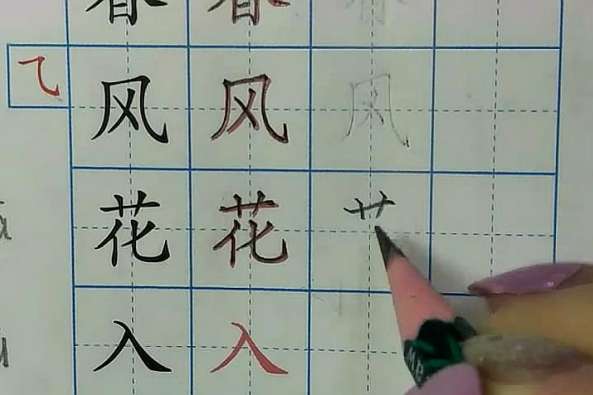 春 春
⺄ 风 风 风
花 花 艹
入 入